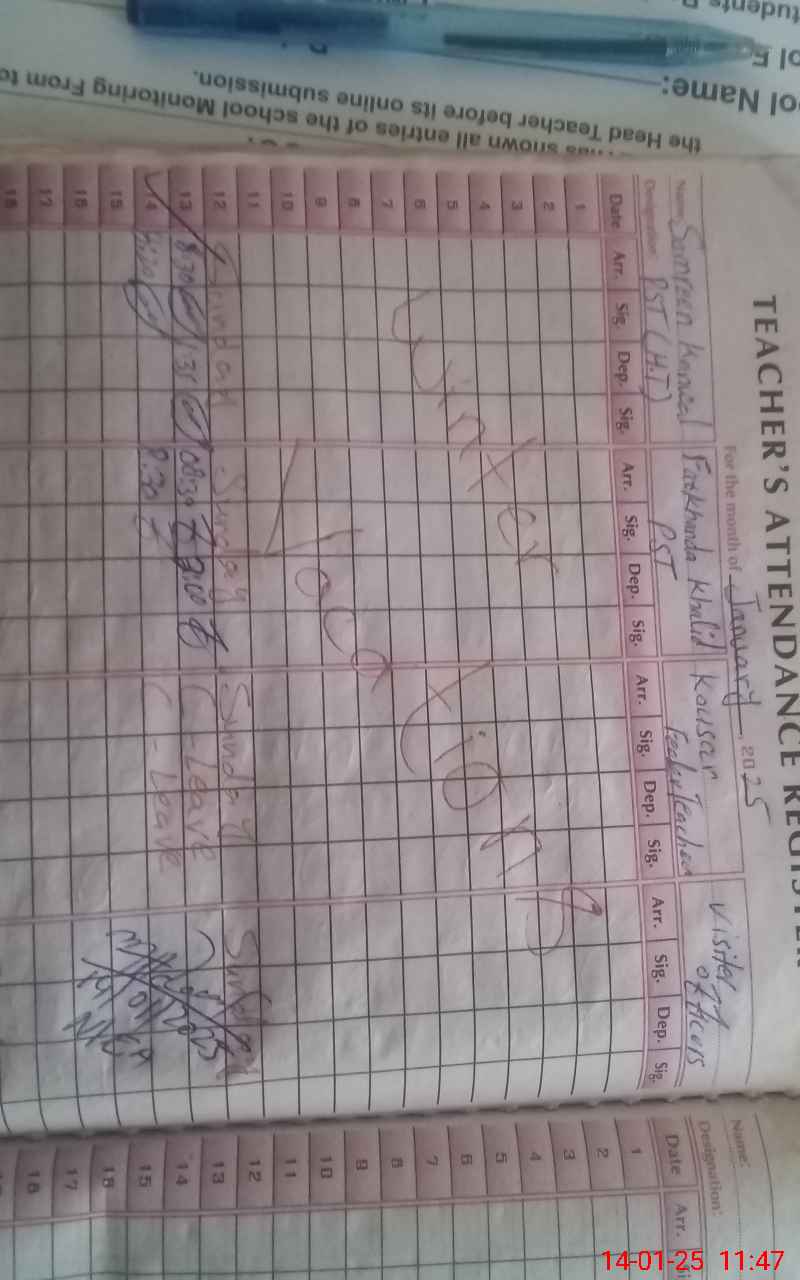 the Head Teacher before its online submission.
all entries of the school Monitoring From to
ol Name:
TEACHER'S ATTENDANCE REGISTER
For the month of January, 2025
Name: Samreen Kanwal Farkhanda Khalid Kousar visiter
Designation: PST (H.T) PST Feeder Teacher officers
Date Arr. Sig. Dep. Sig. Arr. Sig. Dep. Sig. Arr. Sig. Dep. Sig. Arr. Sig. Dep. Sig.
1
2
3
4
5
6
7
8
9
10
11
Winter
Vacations
12 Sunday Sunday Sunday Sunday
13 8:30 1:31 08:30 2:00 C-Leave
14 8:30 8.30 C-Leave
15
16
17
18
Name:
Designation:
Date Arr.
1
2
3
4
5
6
7
8
9
10
11
12
13
14
15
16
17
18
14-01-25 11:47